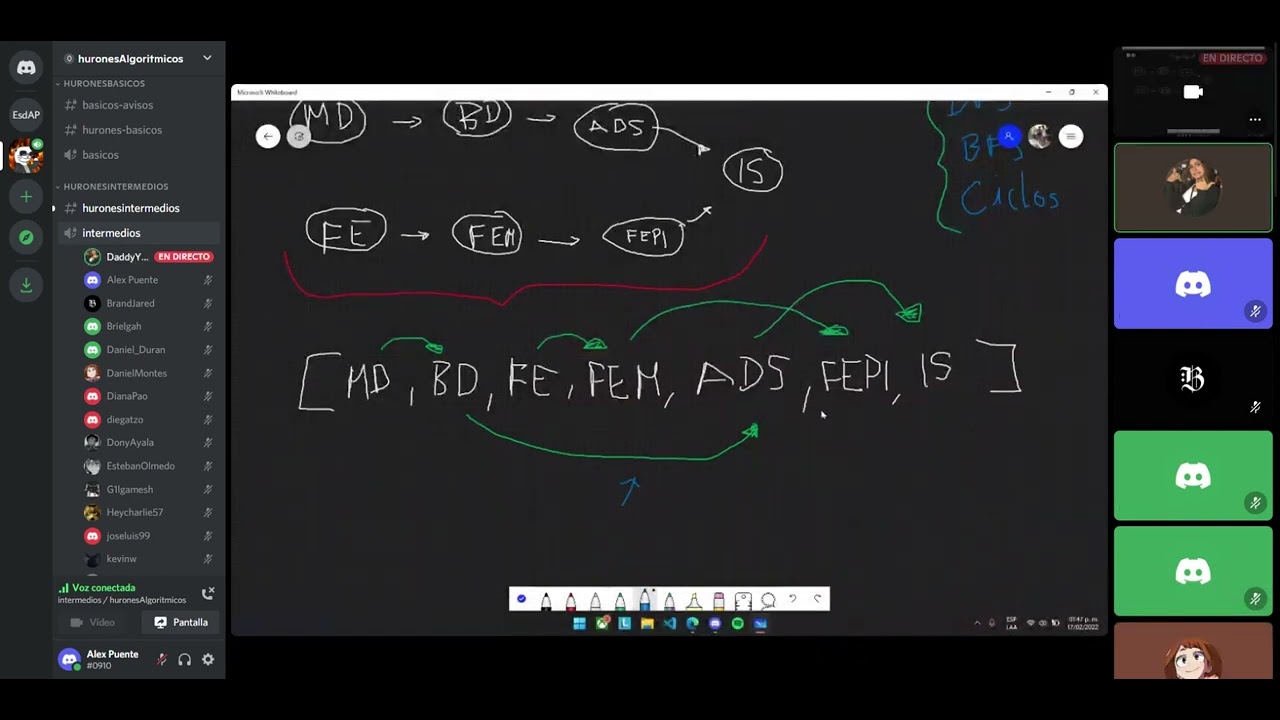 huronesAlgoritmicos
HURONESBASICOS
basicos-avisos
EsdAP
hurones-basicos
basicos
HURONESINTERMEDIOS
huronesintermedios
intermedios
DaddyY... EN DIRECTO
Alex Puente
BrandJared
Brielgah
Daniel_Duran
DanielMontes
DianaPao
diegatzo
DonyAyala
EstebanOlmedo
G1lgamesh
Heycharlie57
joseluis99
kevinw
Voz conectada
intermedios / huronesAlgoritmicos
Vídeo
Pantalla
Alex Puente
#0910
Microsoft Whiteboard
MD → BD → ADS
IS
FE → FEM → FEPI
BFS
Ciclos
[MD, BD, FE, FEM, ADS, FEPI, IS]
ESP
LAA
01:47 p. m.
17/02/2022
EN DIRECTO
B